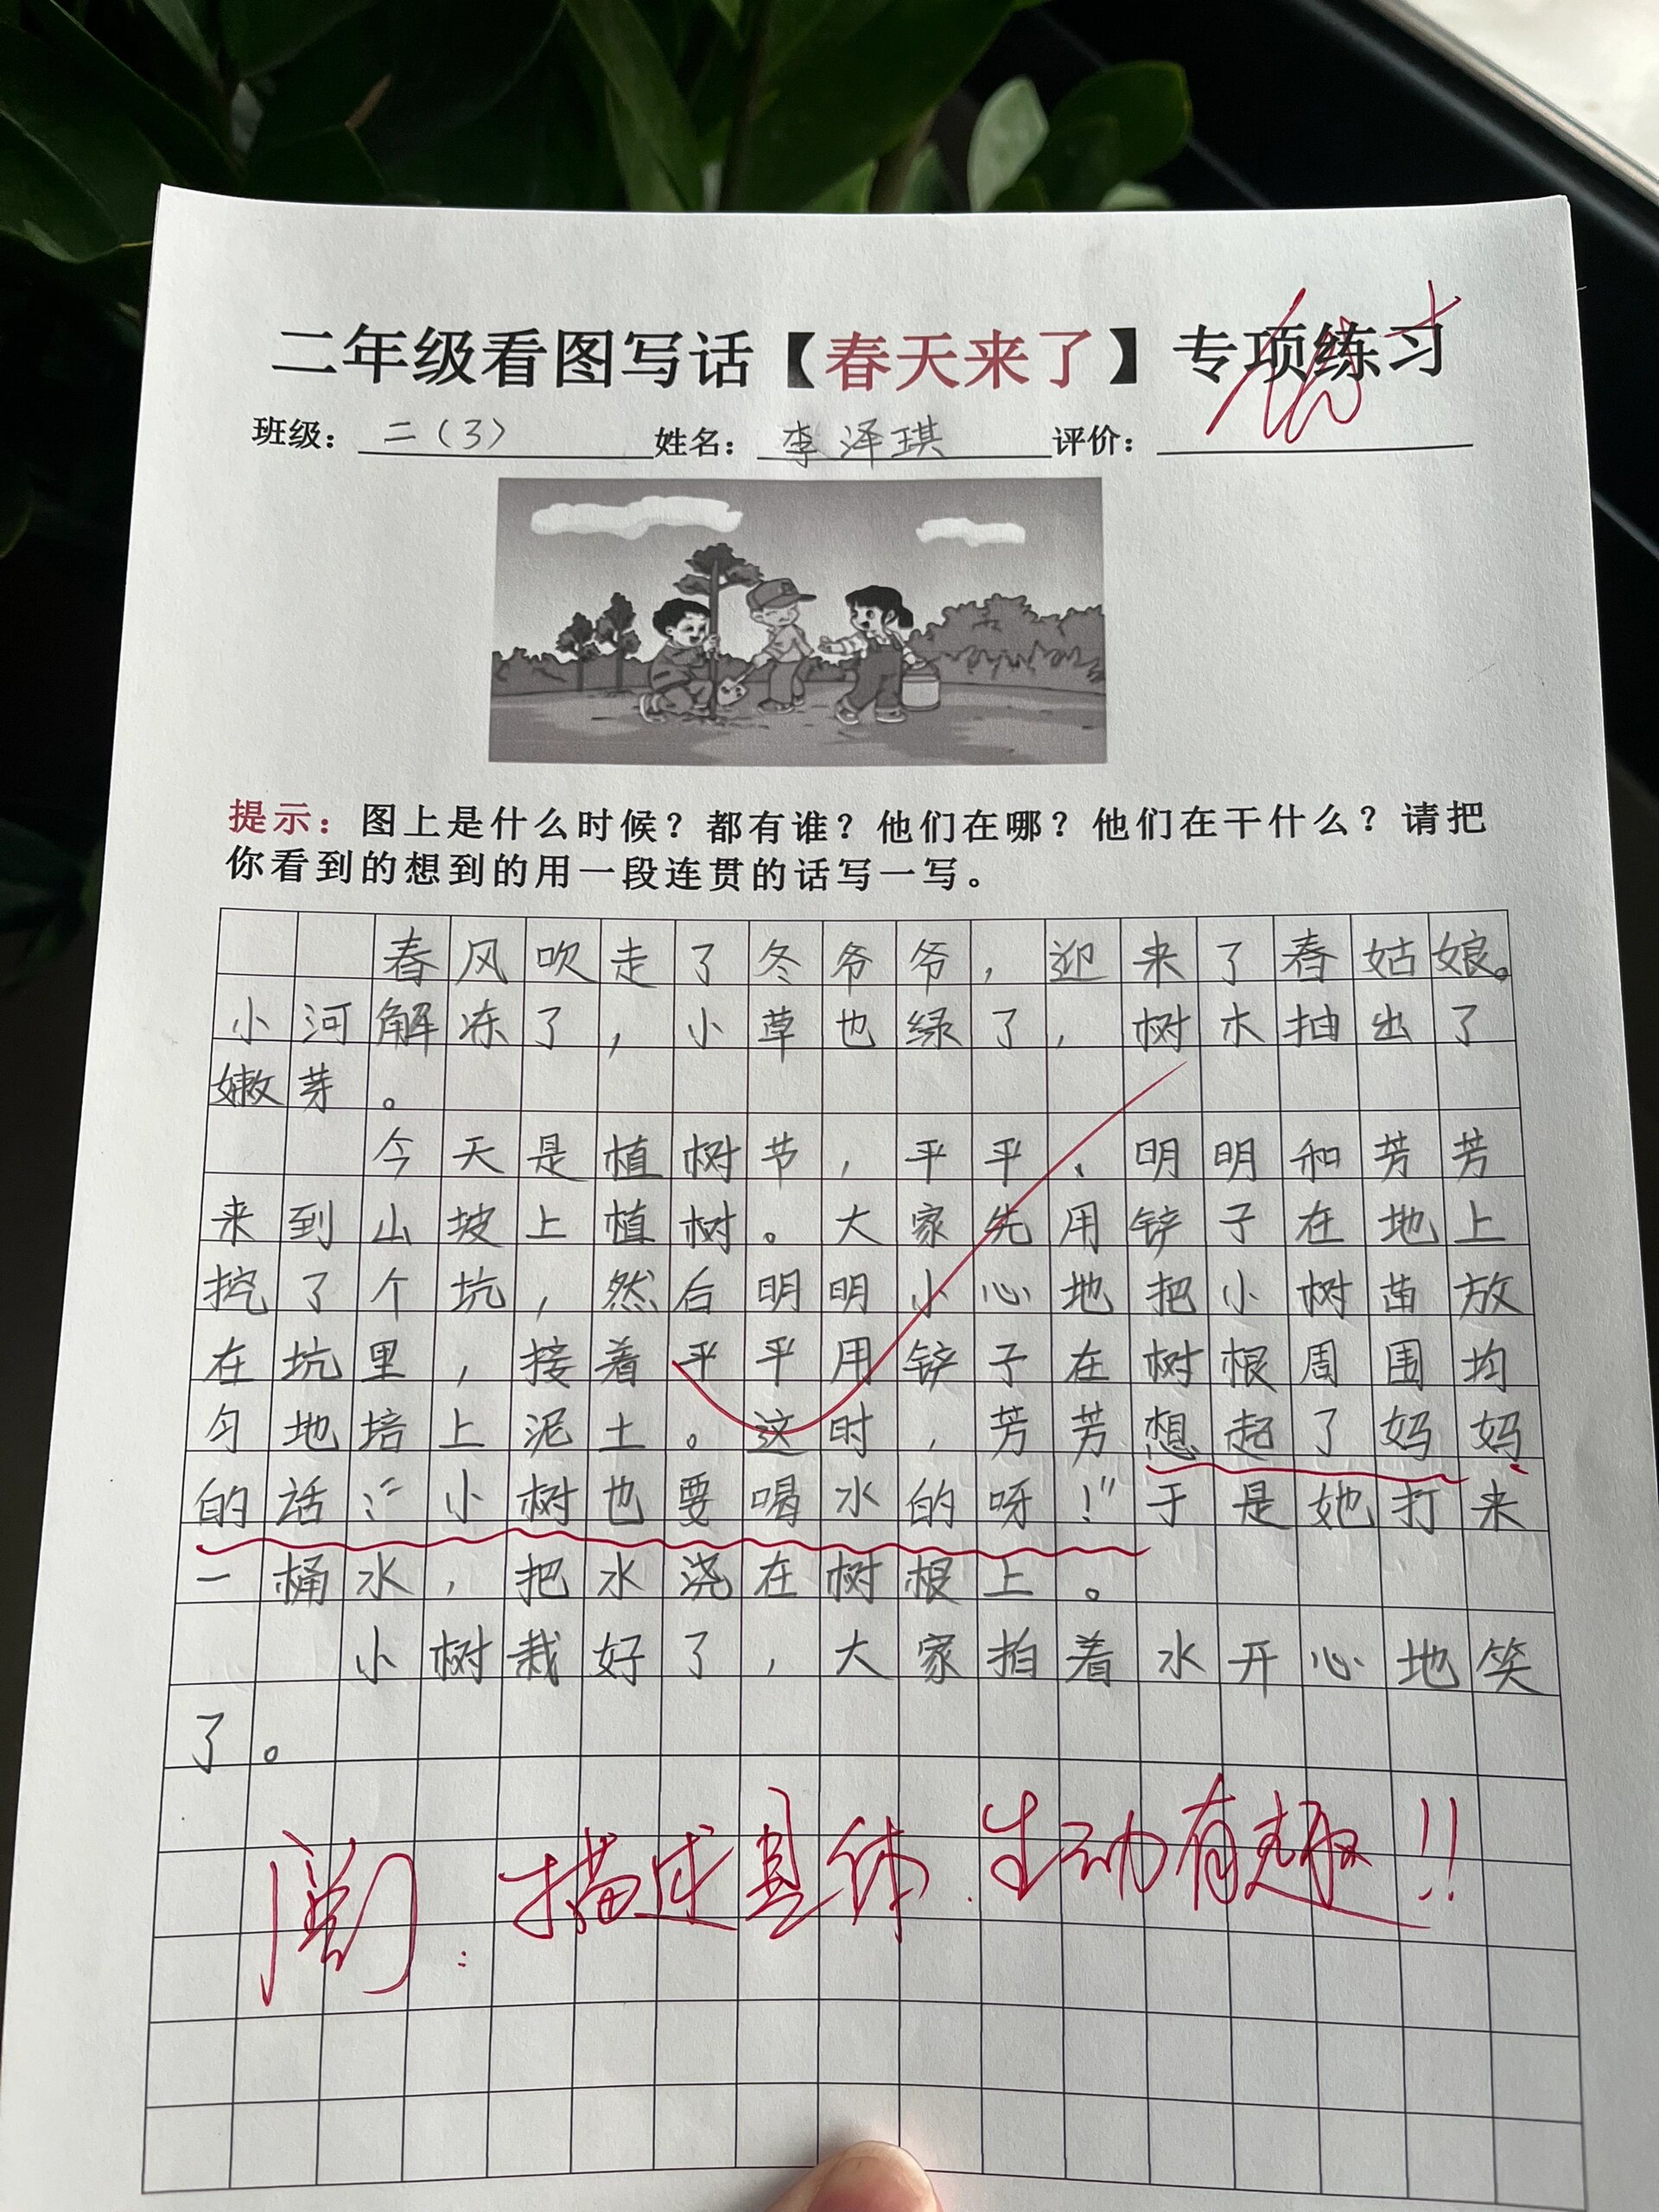 二年级看图写话【春天来了】专项练习
班级：二（3） 姓名：李泽琪 评价：优+
提示：图上是什么时候？都有谁？他们在哪？他们在干什么？请把
你看到的想到的用一段连贯的话写一写。
春风吹走了冬爷爷，迎来了春姑娘。
小河解冻了，小草也绿了，树木抽出了
嫩芽。
今天是植树节，平平、明明和芳芳
来到山坡上植树。大家先用铲子在地上
挖了个坑，然后明明小心地把小树苗放
在坑里，接着平平用铲子在树根周围均
匀地培上泥土。这时，芳芳想起了妈妈
的话：“小树也要喝水的呀！”于是她打来
一桶水，把水浇在树根上。
小树栽好了，大家拍着水开心地笑
了。
阅：描述具体.生动有趣！！